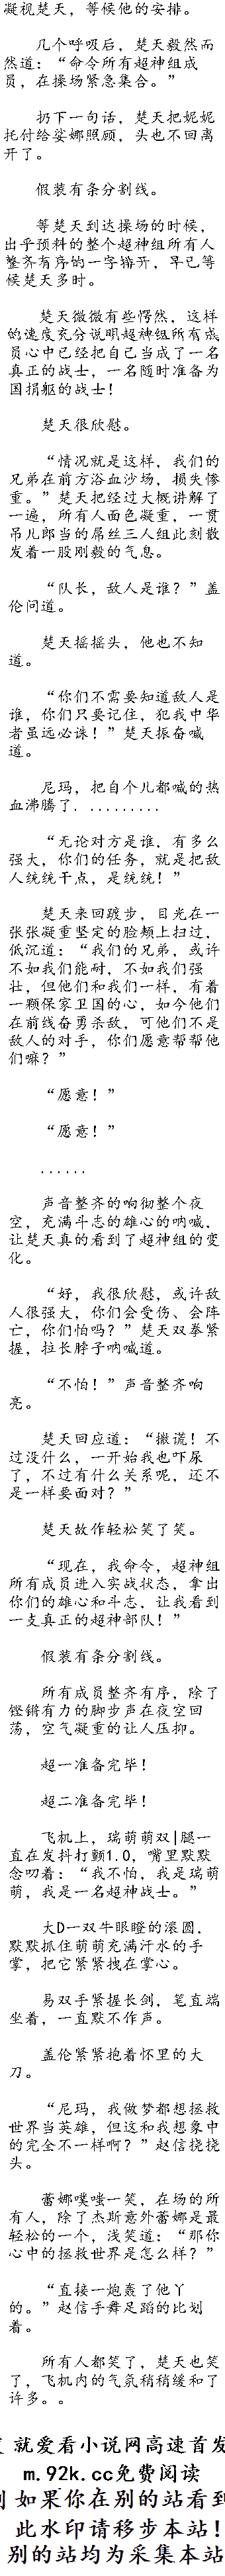 凝视楚天，等候他的安排。
几个呼吸后，楚天毅然而
然道：“命令所有超神组成
员，在操场紧急集合。”
扔下一句话，楚天把妮妮
托付给娑娜照顾，头也不回离
开了。
假装有条分割线。
等楚天到达操场的时候，
出乎预料的整个超神组所有人
整齐有序的一字排开，早已等
候楚天多时。
楚天微微有些愕然，这样
的速度充分说明超神组所有成
员心中已经把自己当成了一名
真正的战士，一名随时准备为
国捐躯的战士！
楚天很欣慰。
“情况就是这样，我们的
兄弟在前方浴血沙场，损失惨
重。”楚天把经过大概讲解了
一遍，所有人面色凝重，一贯
吊儿郎当的屌丝三人组此刻散
发着一股刚毅的气息。
“队长，敌人是谁？”盖
伦问道。
楚天摇摇头，他也不知
道。
“你们不需要知道敌人是
谁，你们只要记住，犯我中华
者虽远必诛！”楚天振奋喊
道。
尼玛，把自个儿都喊的热
血沸腾了．．．．．．．．．．
“无论对方是谁，有多么
强大，你们的任务，就是把敌
人统统干点，是统统！”
楚天来回踱步，目光在一
张张凝重坚定的脸颊上扫过，
低沉道：“我们的兄弟，或许
不如我们能耐，不如我们强
壮，但他们和我们一样，有着
一颗保家卫国的心，如今他们
在前线奋勇杀敌，可他们不是
敌人的对手，你们愿意帮帮他
们嘛？”
“愿意！”
“愿意！”
......
声音整齐的响彻整个夜
空，充满斗志的雄心的呐喊，
让楚天真的看到了超神组的变
化。
“好，我很欣慰，或许敌
人很强大，你们会受伤、会阵
亡，你们怕吗？”楚天双拳紧
握，拉长脖子呐喊道。
“不怕！”声音整齐响
亮。
楚天回应道：“撒谎！不
过没什么，一开始我也吓尿
了，不过有什么关系呢，还不
是一样要面对？”
楚天故作轻松笑了笑。
“现在，我命令，超神组
所有成员进入实战状态，拿出
你们的雄心和斗志，让我看到
一支真正的超神部队！”
假装有条分割线。
所有成员整齐有序，除了
铿锵有力的脚步声在夜空回
荡，空气凝重的让人压抑。
超一准备完毕！
超二准备完毕！
飞机上，瑞萌萌双|腿一
直在发抖打颤1.0，嘴里默默
念叨着：“我不怕，我是瑞萌
萌，我是一名超神战士。”
大D一双牛眼瞪的滚圆，
默默抓住萌萌充满汗水的手
掌，把它紧紧拽在掌心。
易双手紧握长剑，笔直端
坐着，一直默不作声。
盖伦紧紧抱着怀里的大
刀。
“尼玛，我做梦都想拯救
世界当英雄，但这和我想象中
的完全不一样啊？”赵信挠挠
头。
蕾娜噗嗤一笑，在场的所
有人，除了杰斯意外蕾娜是最
轻松的一个，浅笑道：“那你
心中的拯救世界是怎么样？”
“直接一炮轰了他丫
的。”赵信手舞足蹈的比划
着。
所有人都笑了，楚天也笑
了，飞机内的气氛稍稍缓和了
许多。。
就爱看小说网高速首发
m.92k.cc免费阅读
如果你在别的站看到
此水印请移步本站！
别的站均为采集本站